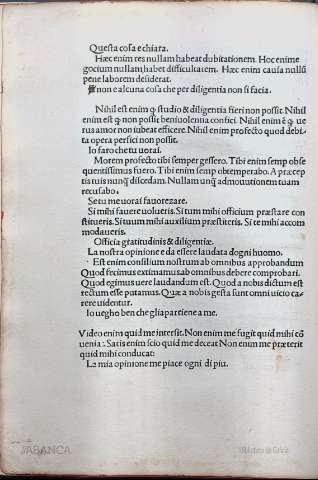 Questa cosa e chiara.
Hæc enim res nullam habeat dubitationem. Hoc enime
gocium nullam habet difficultatem. Hæc enim causa nullũ
pene laborem desiderat.
non e alcuna cosa che per diligentia non si facia.
Nihil est enim q̃ studio & diligentia fieri non possit. Nihil
enim est q̃ non possit beniuolentia confici. Nihil enim ē q̃ ue
rus amor non iubeat efficere. Nihil enim profecto quod debi
ta opera perfici non possit.
Io faro che tu uorai.
Morem profecto tibi semper gessero. Tibi enim semp obse
quentissimus fuero. Tibi enim semp obtemperabo. A præcep
tis tuis nunq̃ discordam. Nullam unq̃ admouutionem tuam
recusabo.
Se tu me uorai fauorezare.
Si mihi fauere uolueris. Si tum mihi officium præstare con
stitueris. Si tuum mihi auxilium præstiteris. Si te mihi accom
modaueris.
Officia gratitudinis & diligentiæ.
La nostra opinione e da essere laudata dogni huomo.
Est enim consilium nostrum ab omnibus approbandum
Quod fecimus existimamus ab omnibus debere comprobari.
Quod egimus uere laudandum est. Quod a nobis dictum est
rectum esse putamus. Quæ a nobis gesta sunt omni uicio ca
rere uidentur.
Io uegho ben che gli apartiene a me.
Video enim quid mea intersit. Non enim me fugit quid mihi cõ
uenia: Satis enim scio quid me deceat Non enim me præterit
quid mihi conducat:
La mia opinione me piace ogni di piu.
ABANCA